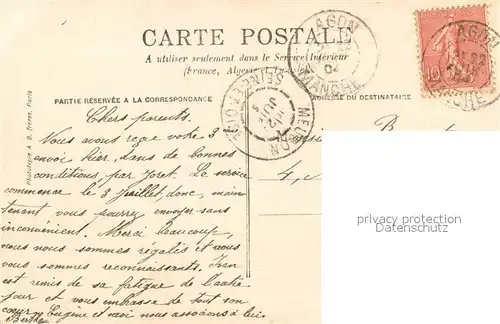 CARTE POSTALE
A utiliser seulement dans le Service Intérieur
(France, Algérie
PARTIE RÉSERVÉE A LA CORRESPONDANCE
ADRESSE DU DESTINATAIRE
AGON
MANCHE
SEINE-ET-OISE
10
AGON
MANCHE
Phototypie A. B. frères, Paris
Chers parents.
Nous vous avons reçu votre
envoi hier, dans de bonnes
conditions, par Joret. Le service
commence le 8 Juillet, donc, main
tenant vous pourrez envoyer sans
inconvénient. Merci beaucoup,
nous nous sommes régalés et nous
vous sommes reconnaissants. Jean
est remis de sa fatigue de l'autre
jour et vous embrasse de tout son
coeur Eugène et moi nous associons à lui.
Berthe
4,
privacy protection
Datenschutz